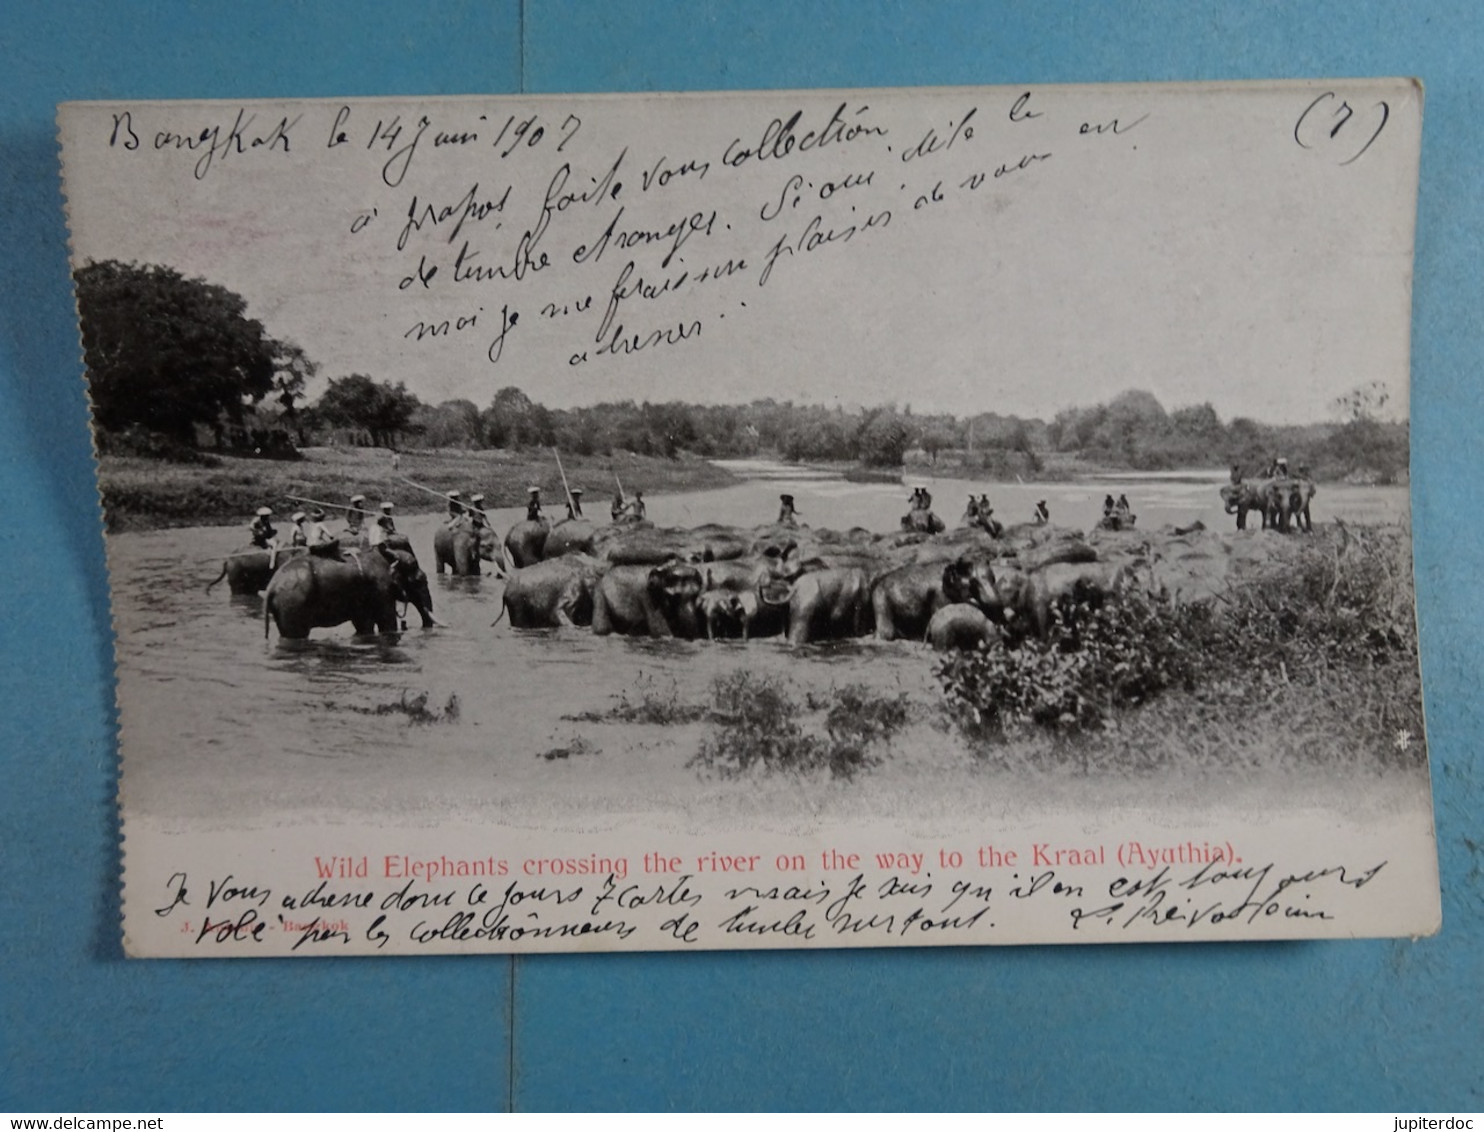 Bangkok le 14 Juin 1907
(7)
à propos faite vous collection
de timbre etranger. Si oui, dite le
moi je me ferais un plaisir de vous en
adresser.
Wild Elephants crossing the river on the way to the Kraal (Ayuthia).
Je vous adresse donc ce jours 7 cartes mais je sais qu'il en est toujours
J. - Bangkok
volé par les collectionneurs de timbre surtout.
jupiterdoc